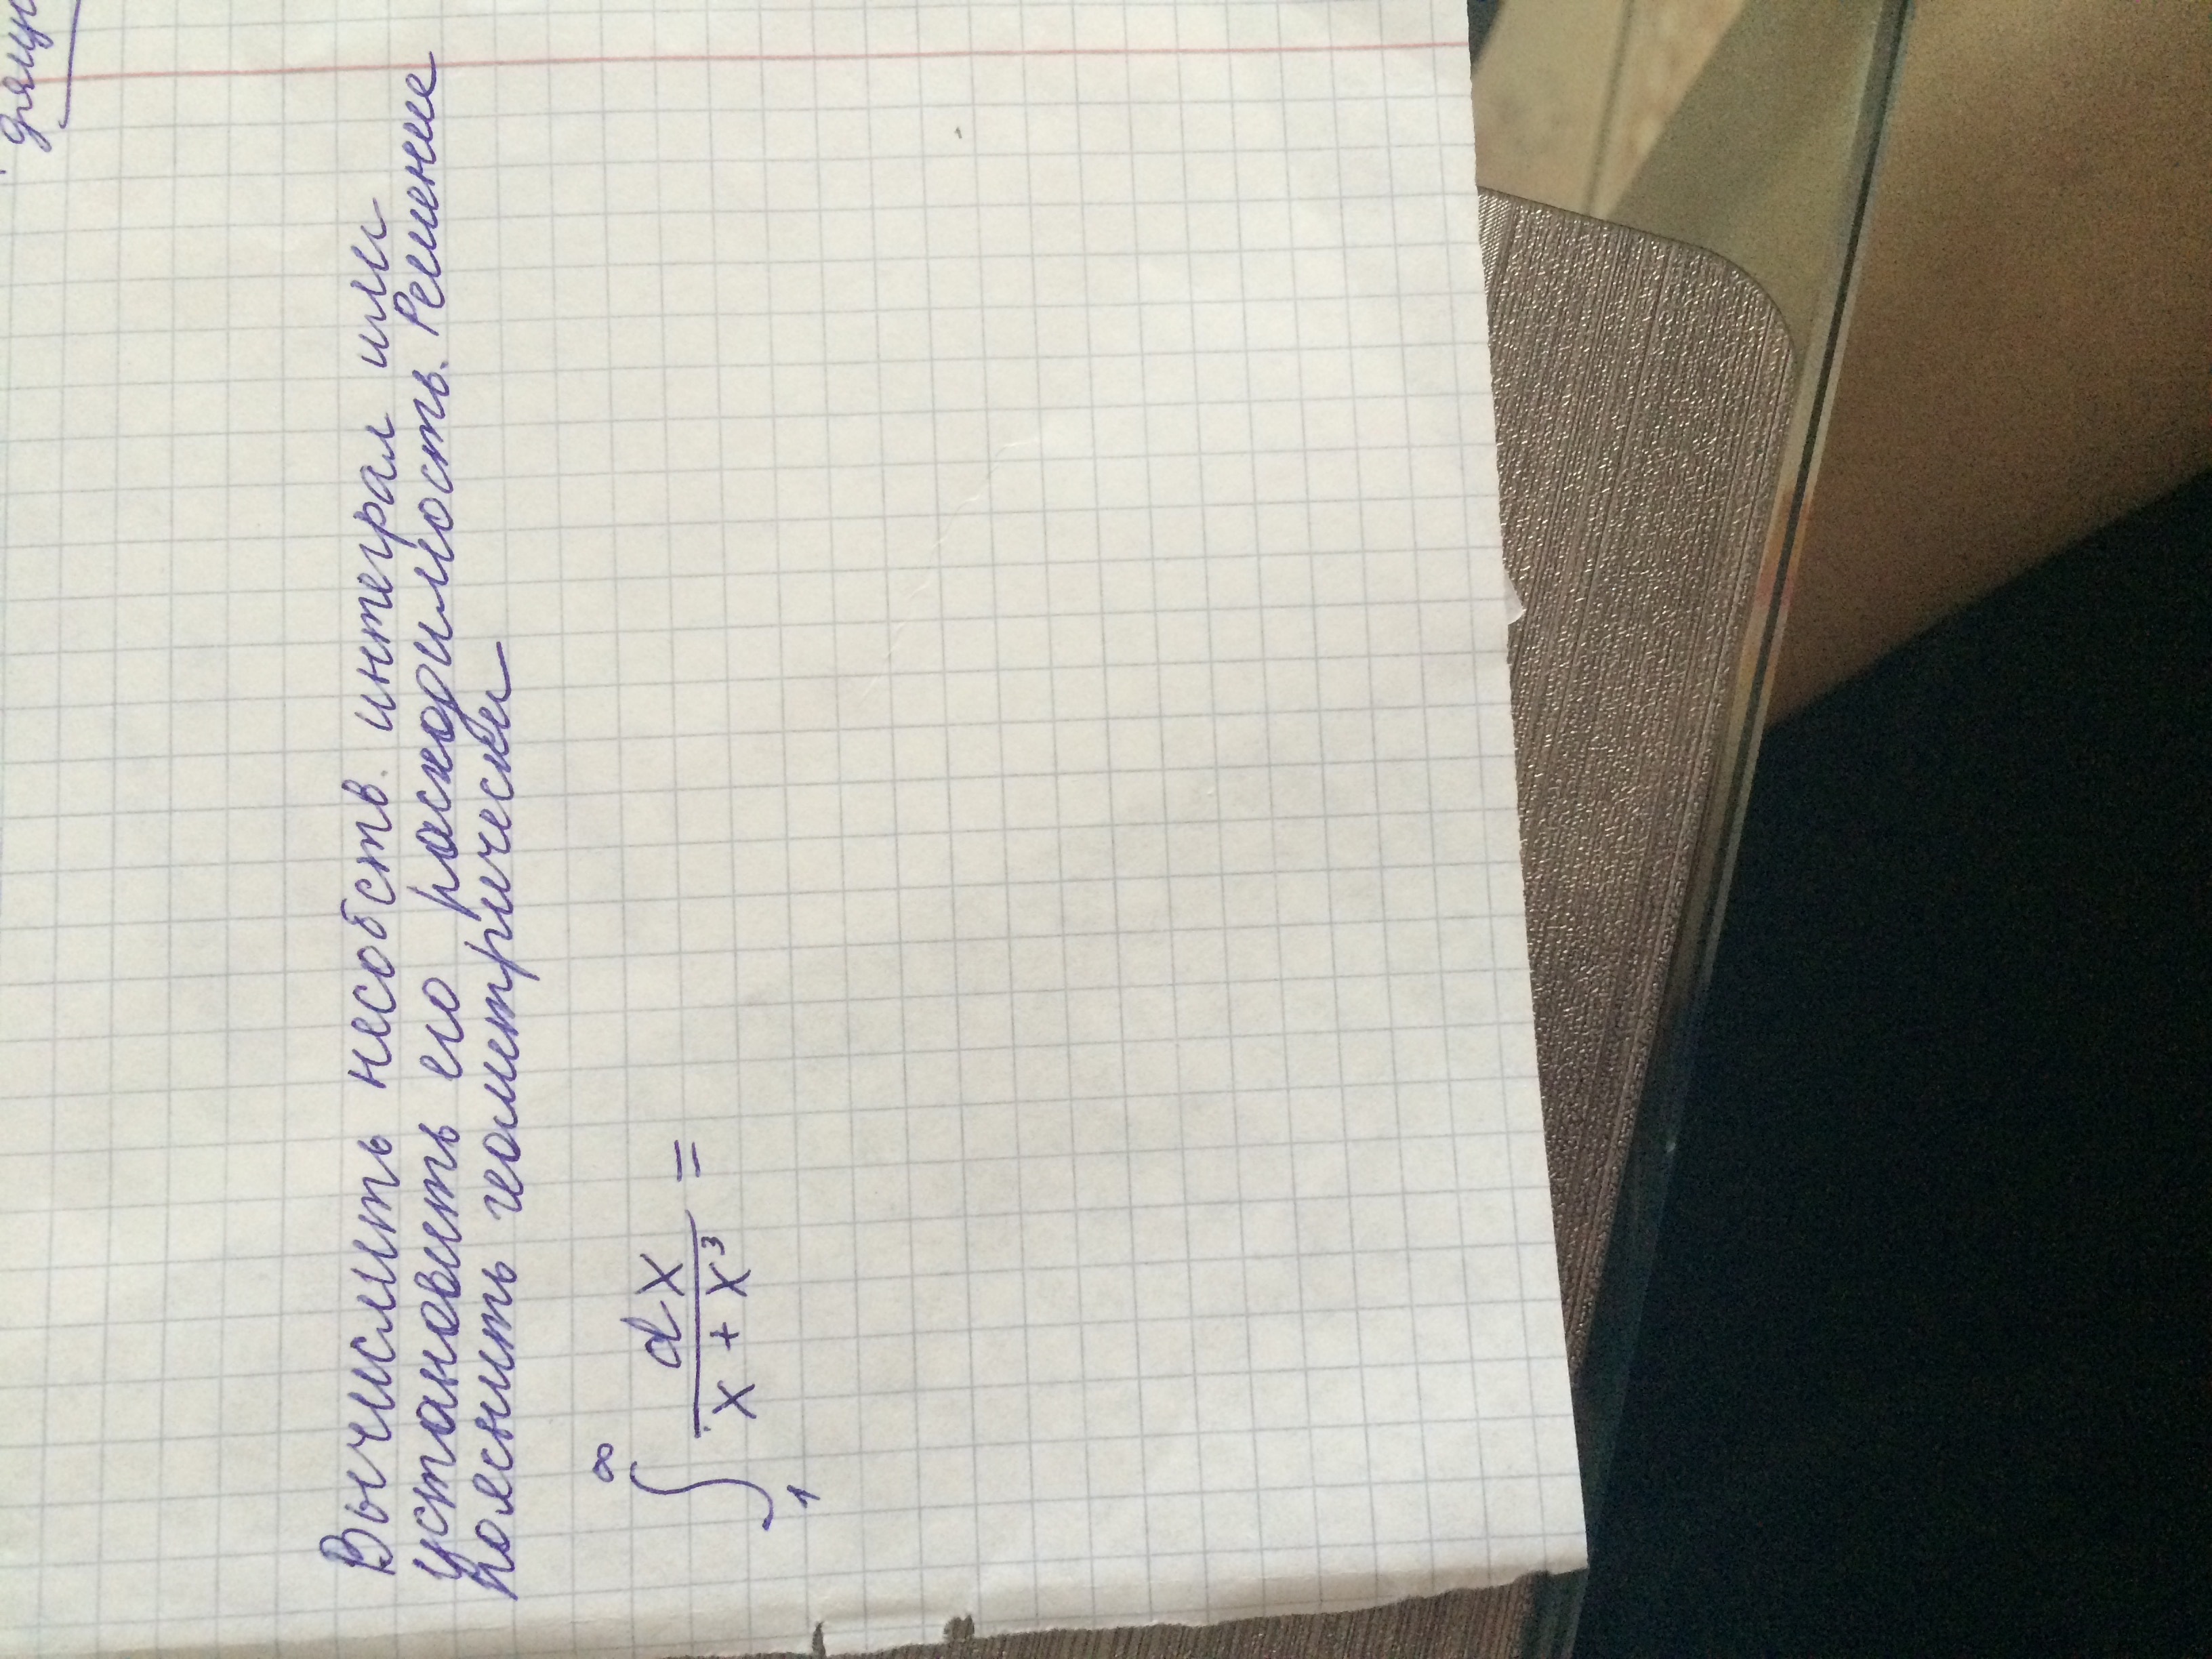 Вычислить несобств. интеграл или
установить его расходимость. Решение
пояснить геометрически
∫₁^∞ dx/(x + x³) =